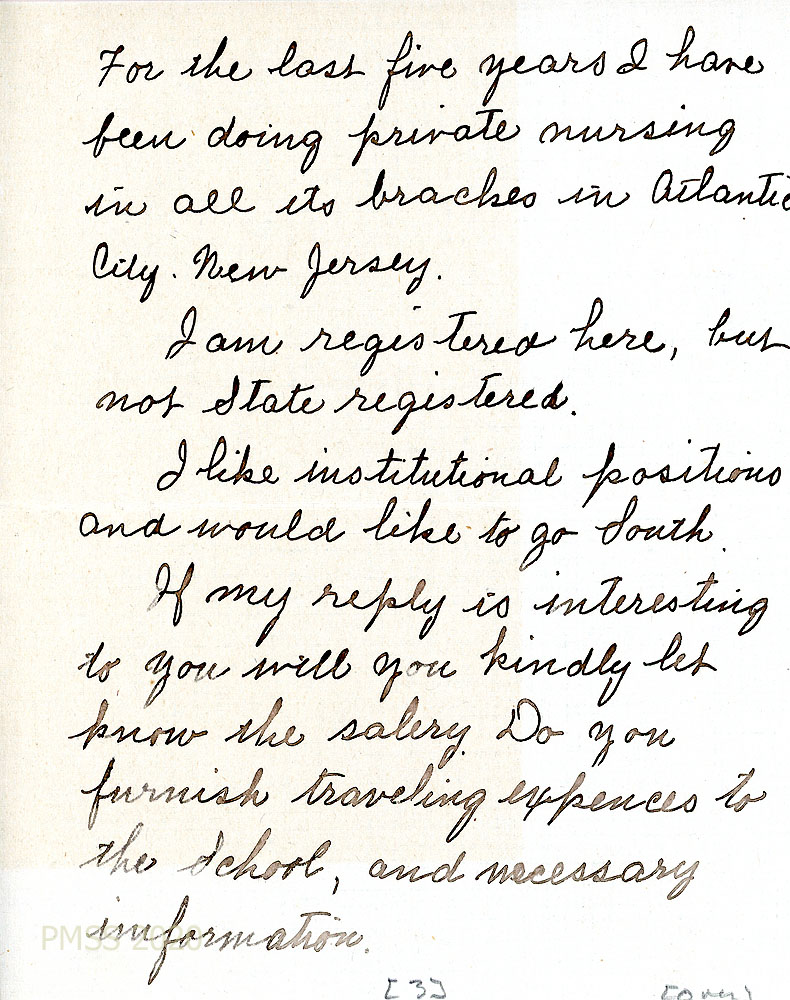 For the last five years I have
been doing private nursing
in all its braches in Atlantic
City. New Jersey.
I am registered here, but
not State registered.
I like institutional positions
and would like to go South.
If my reply is interesting
to you will you kindly let
know the salery. Do you
furnish traveling expences to
the School, and necessary
imformation.
PMSS 2020
[3] [over]